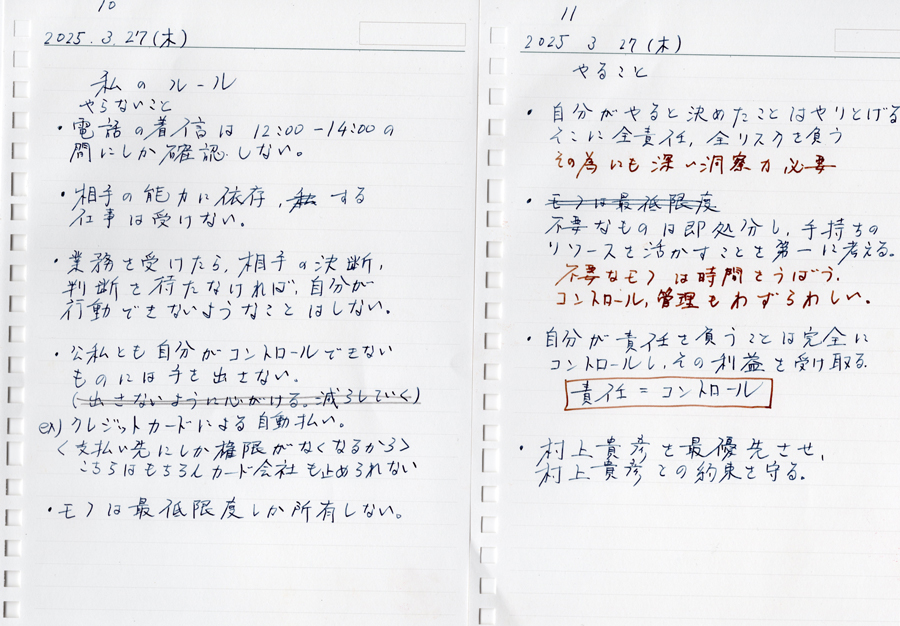 10
2025.3.27(木)
私のルール
やらないこと
・電話の着信は12:00-14:00の
間にしか確認しない。
・相手の能力に依存、私する
仕事は受けない。
・業務を受けたら、相手の決断、
判断を待たなければ、自分が
行動できないようなことはしない。
・公私とも自分がコントロールできない
ものには手を出さない。
(出さないように心がける。減らしていく)
ex)クレジットカードによる自動払い。
〈支払い先にしか権限がなくなるから〉
こちらはもちろんカード会社も止められない
・モノは最低限度しか所有しない。
11
2025 3 27(木)
やること
・自分がやると決めたことはやりとげる
そこに全責任、全リスクを負う
その為にも深い洞察力必要
・モノは最低限度
不要なものは即処分し、手持ちの
リソースを活かすことを第一に考える。
不要なモノは時間をうばう。
コントロール、管理もわずらわしい。
・自分が責任を負うことは完全に
コントロールし、その利益を受け取る。
責任=コントロール
・村上貴彦を最優先させ、
村上貴彦との約束を守る。